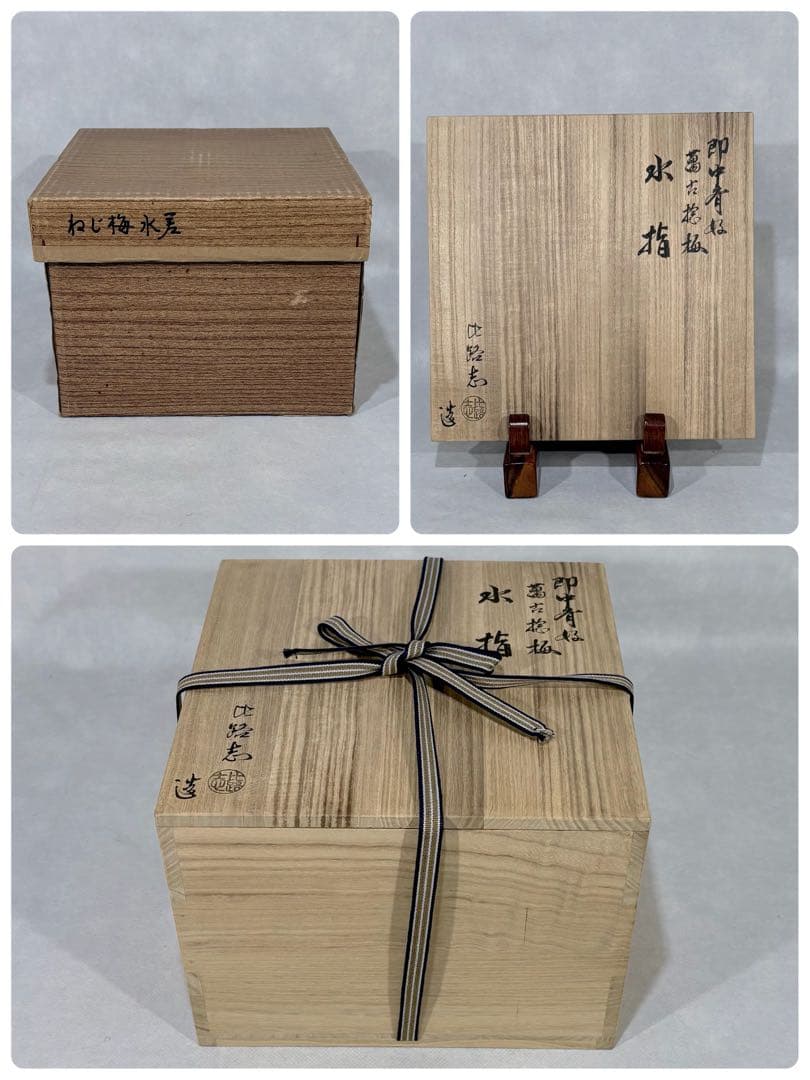 ねじ梅水差
即中斎好
萬古捻梅
水指
比路志
造
即中斎好
萬古捻梅
水指
比路志
造